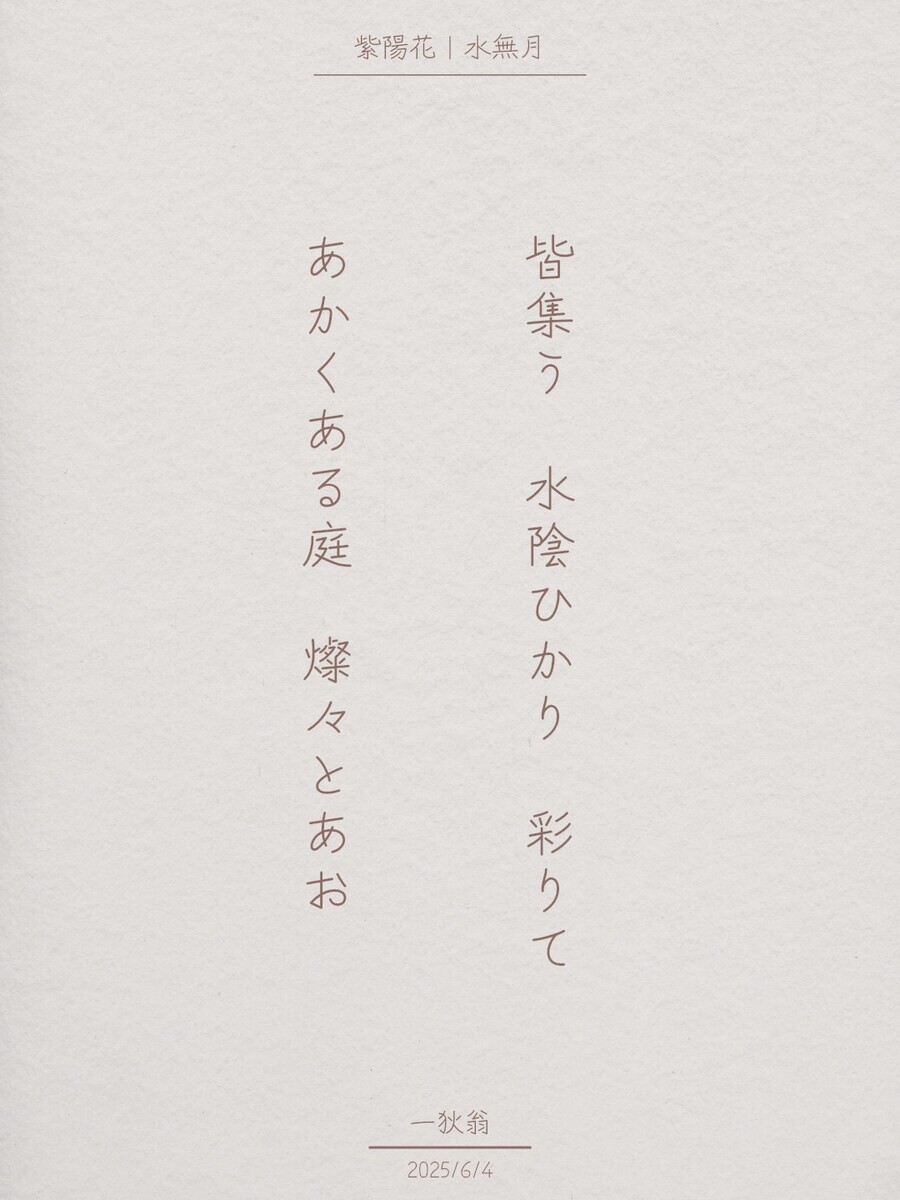 紫陽花｜水無月
皆集う　水陰ひかり　彩りて
あかくある庭　燦々とあお
一狄翁
2025/6/4